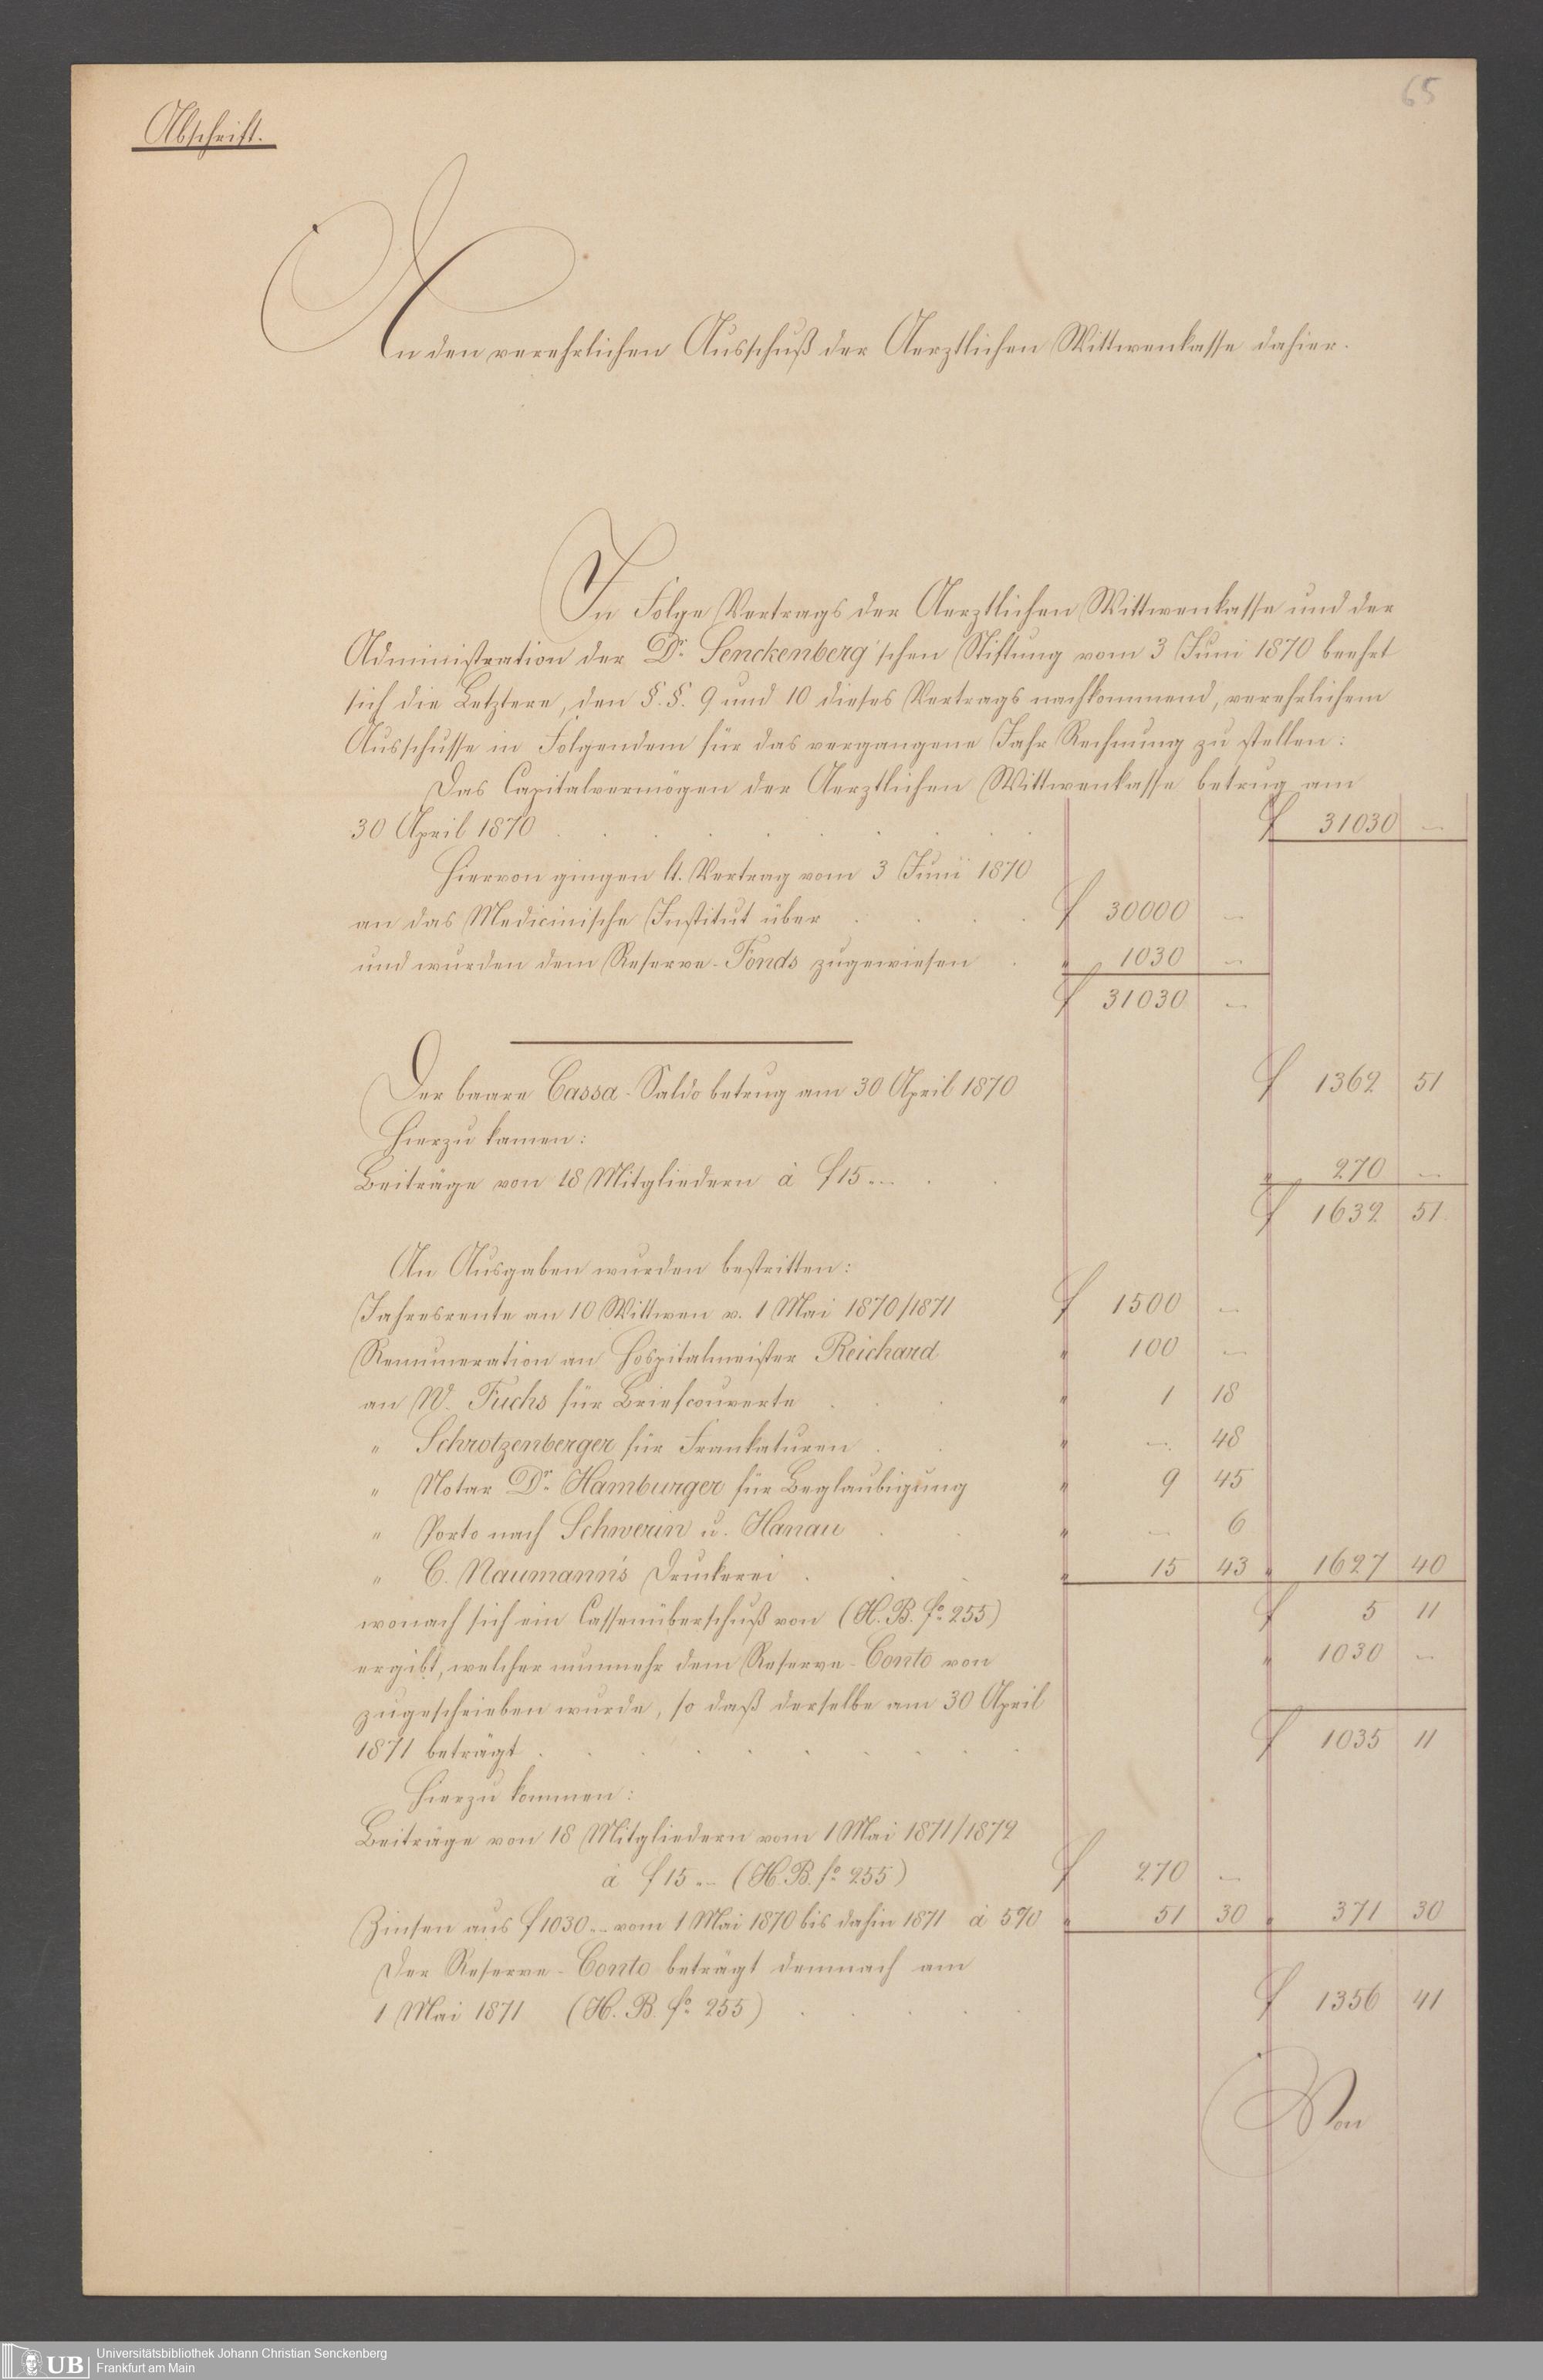 65
Abschrift.
An den verehrlichen Ausschuß der Aerztlichen Wittwenkasse dahier.
In Folge Vertrags der Aerztlichen Wittwenkasse und der
Administration der Dr. Senckenberg'schen Stiftung vom 3 Juni 1870 beehrt
sich die Letztere, den §.§. 9 und 10 dieses Vertrags nachkommend, verehrlichem
Ausschusse in Folgendem für das vergangene Jahr Rechnung zu stellen:
Das Capitalvermögen der Aerztlichen Wittwenkasse betrug am
30 April 1870 . . . . . . . . f 31030 –
Hiervon gingen lt. Vertrag vom 3 Juni 1870
an das Medicinische Institut über . . . . f 30000 –
und wurden dem Reserve-Fonds zugewiesen . " 1030 –
f 31030 –
Der baare Cassa-Saldo betrug am 30 April 1870 f 1362 51
Hierzu kamen:
Beiträge von 18 Mitgliedern à f 15.– . . " 270 –
f 1632 51
An Ausgaben wurden bestritten:
Jahresrente an 10 Wittwen v. 1 Mai 1870/1871 f 1500 –
Remuneration an Hospitalmeister Reichard " 100 –
an W. Fuchs für Briefcouverte . . . " 1 18
" Schrotzenberger für Frankaturen . . " – 48
" Notar Dr. Hamburger für Beglaubigung " 9 45
" Porto nach Schwerin u. Hanau . . " – 6
" C. Naumann's Druckerei . . . " 15 43 " 1627 40
wonach sich ein Cassenüberschuß von (H. B. fo. 255) f 5 11
ergibt, welcher nunmehr dem Reserve-Conto von " 1030 –
zugeschrieben wurde, so daß derselbe am 30 April
1871 beträgt . . . . . . . . . f 1035 11
Hierzu kommen:
Beiträge von 18 Mitgliedern vom 1 Mai 1871/1872
à f 15.– (H. B. fo. 255) f 270 –
Zinsen aus f 1030.– vom 1 Mai 1870 bis dahin 1871 à 5% " 51 30 " 371 30
Der Reserve-Conto beträgt demnach am
1 Mai 1871 (H. B. fo. 255) . . . . . f 1356 41
Von
UB
Universitätsbibliothek Johann Christian Senckenberg
Frankfurt am Main